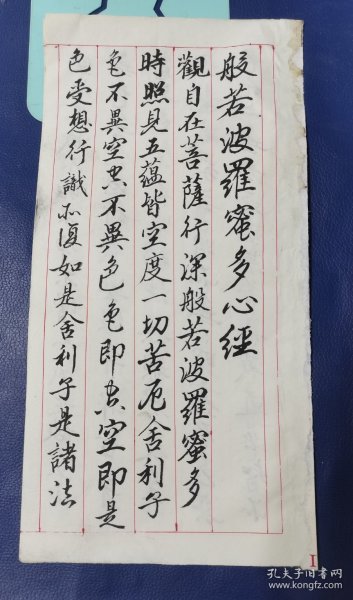 般若波羅蜜多心經
觀自在菩薩行深般若波羅蜜多
時照見五蘊皆空度一切苦厄舍利子
色不異空空不異色色即空空即是
色受想行識亦復如是舍利子是諸法
I
孔夫子旧书网
www.kongfz.com